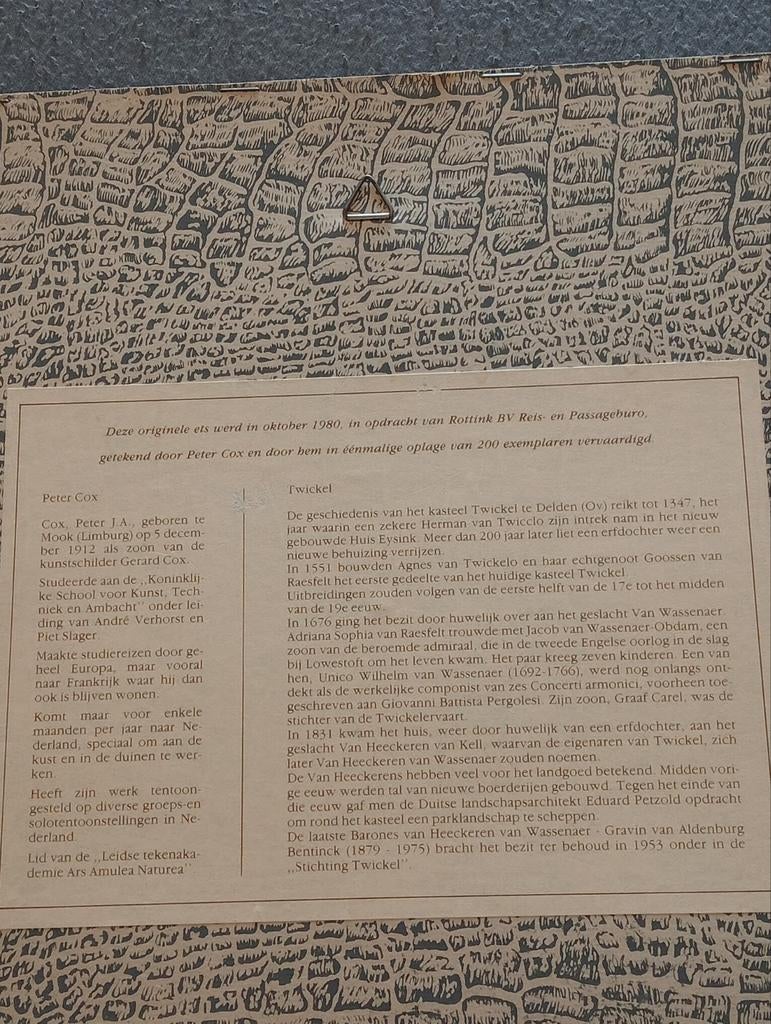 Deze originele ets werd in oktober 1980, in opdracht van Rottink BV Reis- en Passageburo,
getekend door Peter Cox en door hem in éénmalige oplage van 200 exemplaren vervaardigd.
Peter Cox
Cox, Peter J.A., geboren te
Mook (Limburg) op 5 decem-
ber 1912 als zoon van de
kunstschilder Gerard Cox.
Studeerde aan de ,,Koninklij-
ke School voor Kunst, Tech-
niek en Ambacht'' onder lei-
ding van André Verhorst en
Piet Slager.
Maakte studiereizen door ge-
heel Europa, maar vooral
naar Frankrijk waar hij dan
ook is blijven wonen.
Komt maar voor enkele
maanden per jaar naar Ne-
derland, speciaal om aan de
kust en in de duinen te wer-
ken.
Heeft zijn werk tentoon-
gesteld op diverse groeps-en
solotentoonstellingen in Ne-
derland.
Lid van de ,,Leidse tekenaka-
demie Ars Amulea Naturea''
Twickel
De geschiedenis van het kasteel Twickel te Delden (Ov) reikt tot 1347, het
jaar waarin een zekere Herman van Twicclo zijn intrek nam in het nieuw
gebouwde Huis Eysink. Meer dan 200 jaar later liet een erfdochter weer een
nieuwe behuizing verrijzen.
In 1551 bouwden Agnes van Twickelo en haar echtgenoot Goossen van
Raesfelt het eerste gedeelte van het huidige kasteel Twickel.
Uitbreidingen zouden volgen van de eerste helft van de 17e tot het midden
van de 19e eeuw.
In 1676 ging het bezit door huwelijk over aan het geslacht Van Wassenaer.
Adriana Sophia van Raesfelt trouwde met Jacob van Wassenaer-Obdam, een
zoon van de beroemde admiraal, die in de tweede Engelse oorlog in de slag
bij Lowestoft om het leven kwam. Het paar kreeg zeven kinderen. Een van
hen, Unico Wilhelm van Wassenaer (1692-1766), werd nog onlangs ont-
dekt als de werkelijke componist van zes Concerti armonici, voorheen toe-
geschreven aan Giovanni Battista Pergolesi. Zijn zoon, Graaf Carel, was de
stichter van de Twickelervaart.
In 1831 kwam het huis, weer door huwelijk van een erfdochter, aan het
geslacht Van Heeckeren van Kell, waarvan de eigenaren van Twickel, zich
later Van Heeckeren van Wassenaer zouden noemen.
De Van Heeckerens hebben veel voor het landgoed betekend. Midden vori-
ge eeuw werden tal van nieuwe boerderijen gebouwd. Tegen het einde van
die eeuw gaf men de Duitse landschapsarchitekt Eduard Petzold opdracht
om rond het kasteel een parklandschap te scheppen.
De laatste Barones van Heeckeren van Wassenaer - Gravin van Aldenburg
Bentinck (1879 - 1975) bracht het bezit ter behoud in 1953 onder in de
,,Stichting Twickel''.